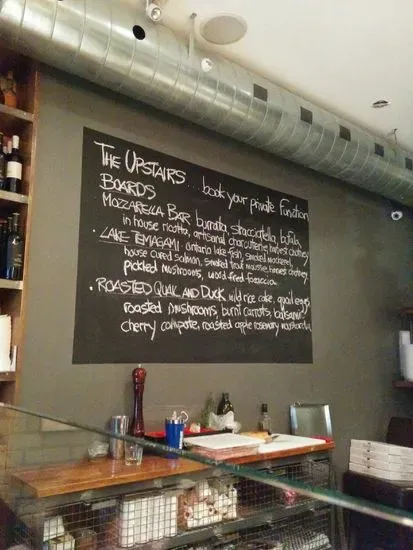 THE UPSTAIRS ... book your private function
BOARDS
MOZZARELLA BAR burrata, stracciatella, bufala,
in house ricotta, artisanal charcuterie, harvest chutney
• LAKE TEMAGAMI ontario lake fish, smoked mackerel,
house cured salmon, smoked trout mousse, harvest chutney,
pickled mushrooms, wood fired foccaccia
• ROASTED QUAIL AND DUCK wild rice cake, quail eggs,
roasted mushrooms, burnt carrots, balsamic
cherry compote, roasted apple rosemary mustarda